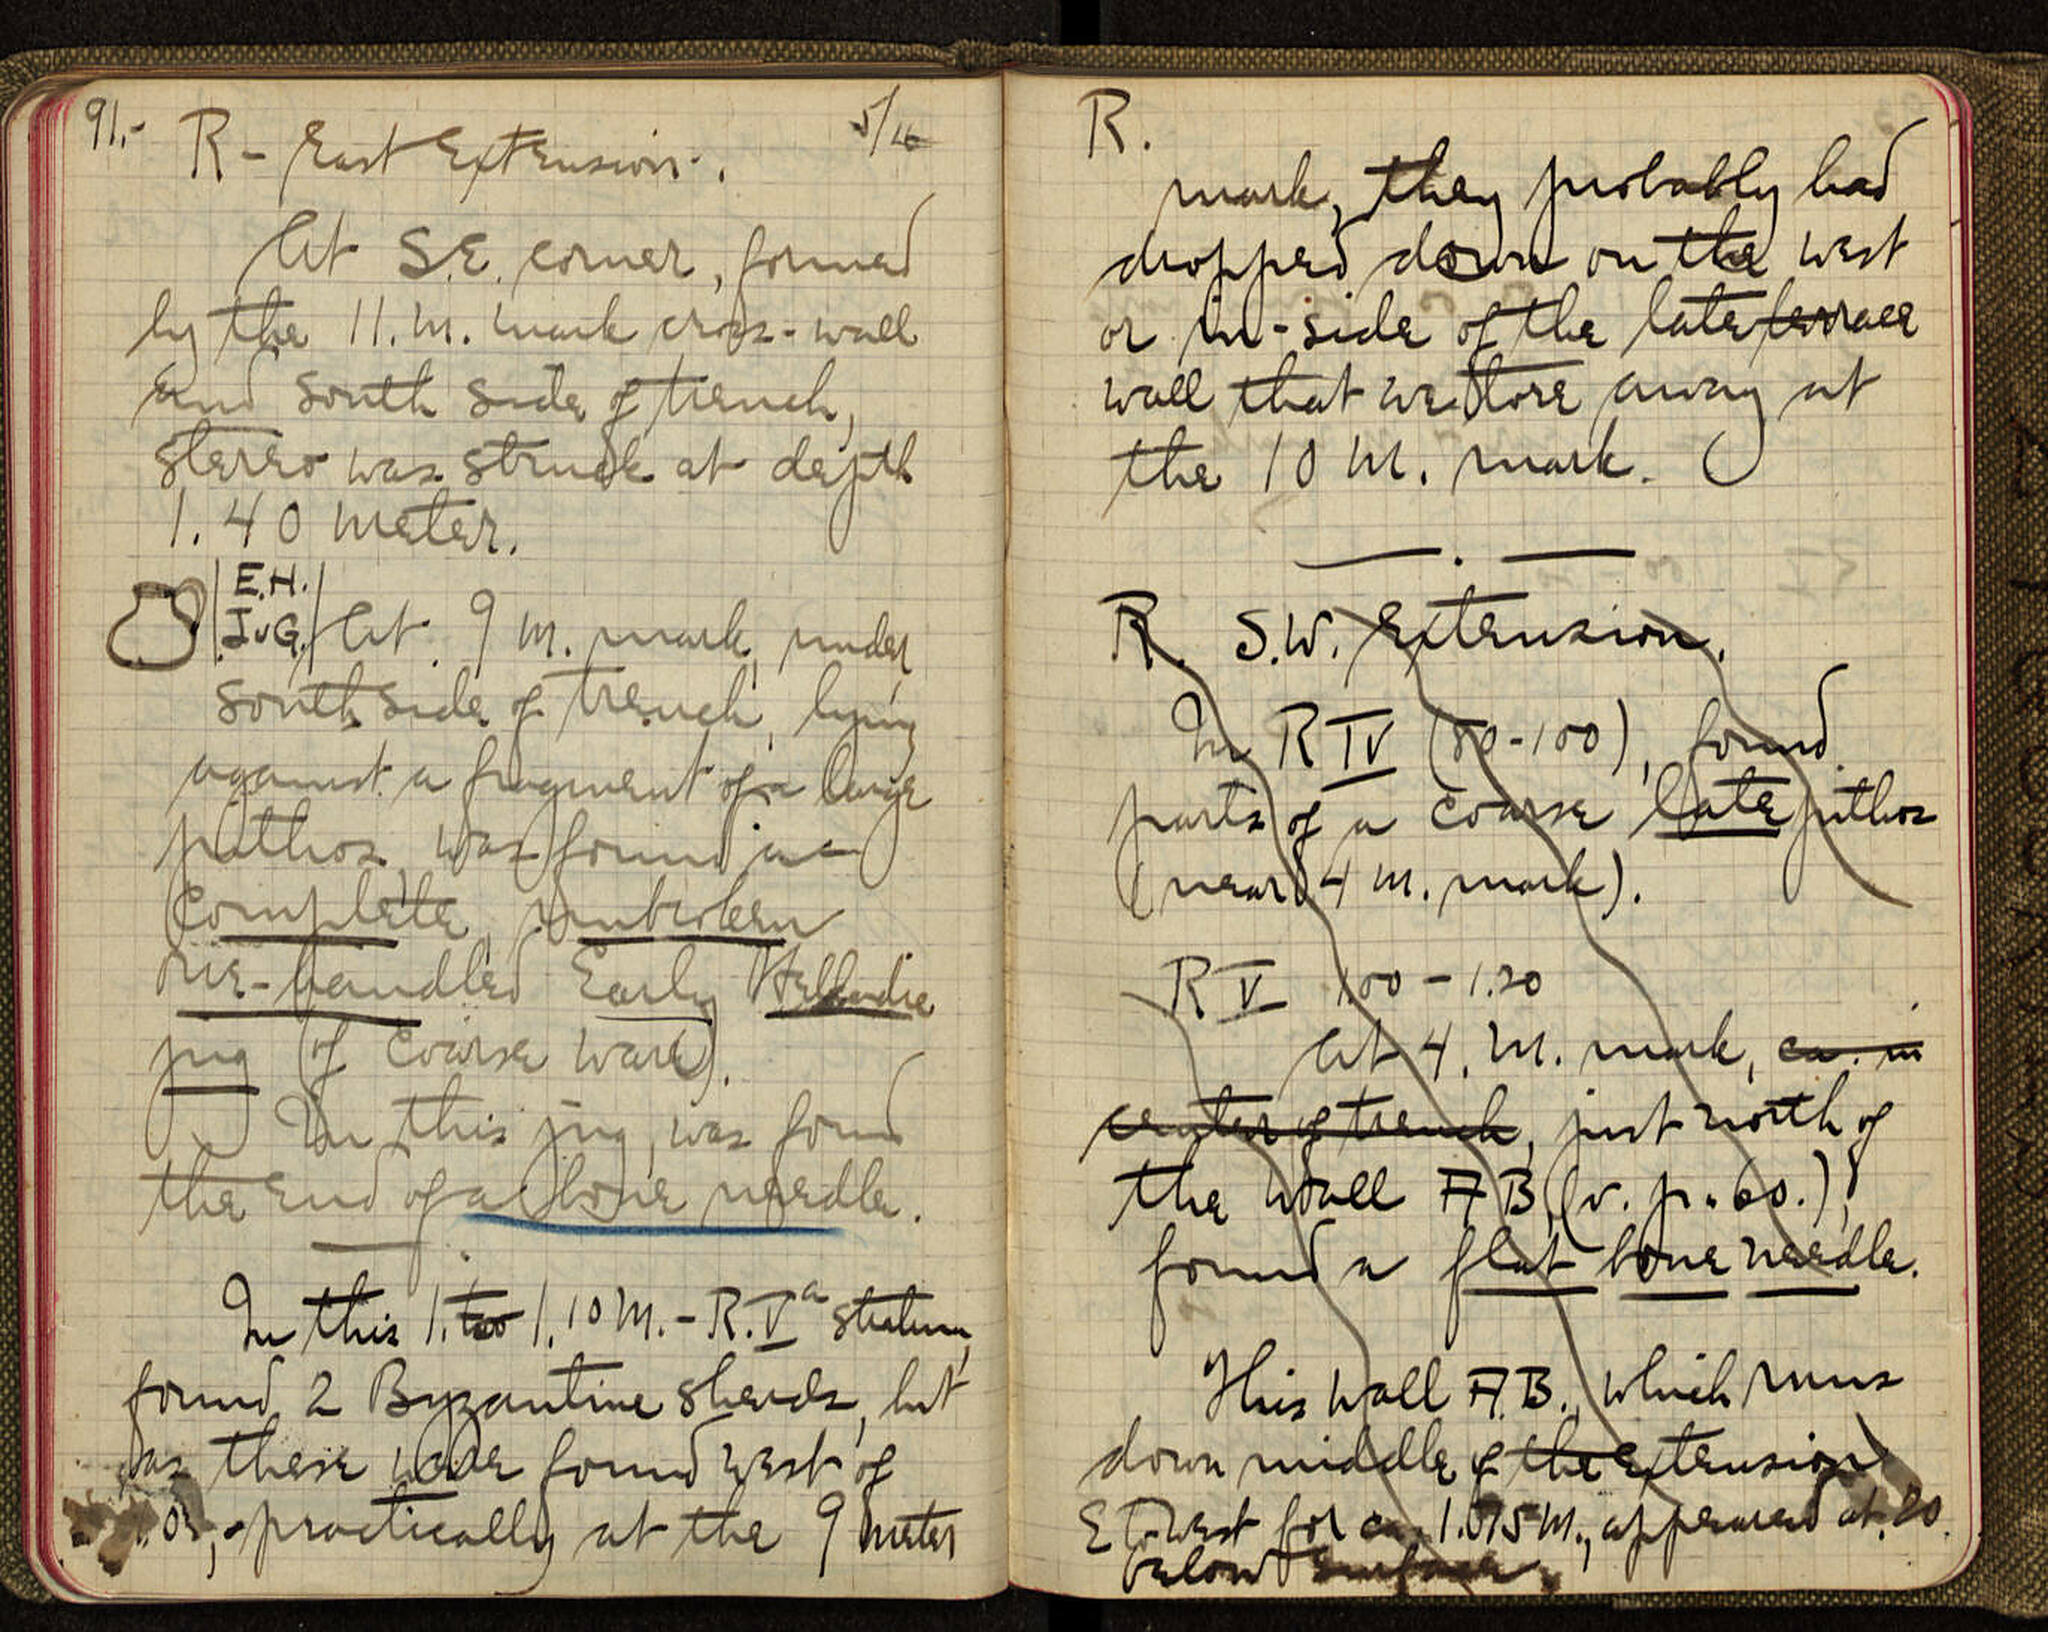 91.-
R - East Extension.
5/16
At S.E. corner, formed
by the 11. M. mark cross-wall
and south side of trench,
stereo was struck at depth
1.40 meter.
E.H.
JvG.
At 9 m. mark, under
south side of trench, lying
against a fragment of a large
pithos, was found a
complete, unbroken
one-handled Early Helladic
jug (of coarse ware).
In this jug, was found
the end of a bone needle.
In this 1. 1.10 M. - R.Va stratum,
found 2 Byzantine sherds, but
as these were found west of
or, practically at the 9 meter
R.
mark, they probably had
dropped down on the west
or in-side of the late terrace
wall that we tore away at
the 10 M. mark.
R. S.W. Extension.
In R IV (80-100), found
parts of a coarse late pithos
(near 4 m. mark).
R V 1.00 - 1.20
At 4. M. mark, ca. in
center of trench, just north of
the wall AB, (v. p. 60.),
found a flat bone needle.
This wall A.B., which runs
down middle of the extension
E to west for ca. 1.075 M., appeared at .80
below surface.